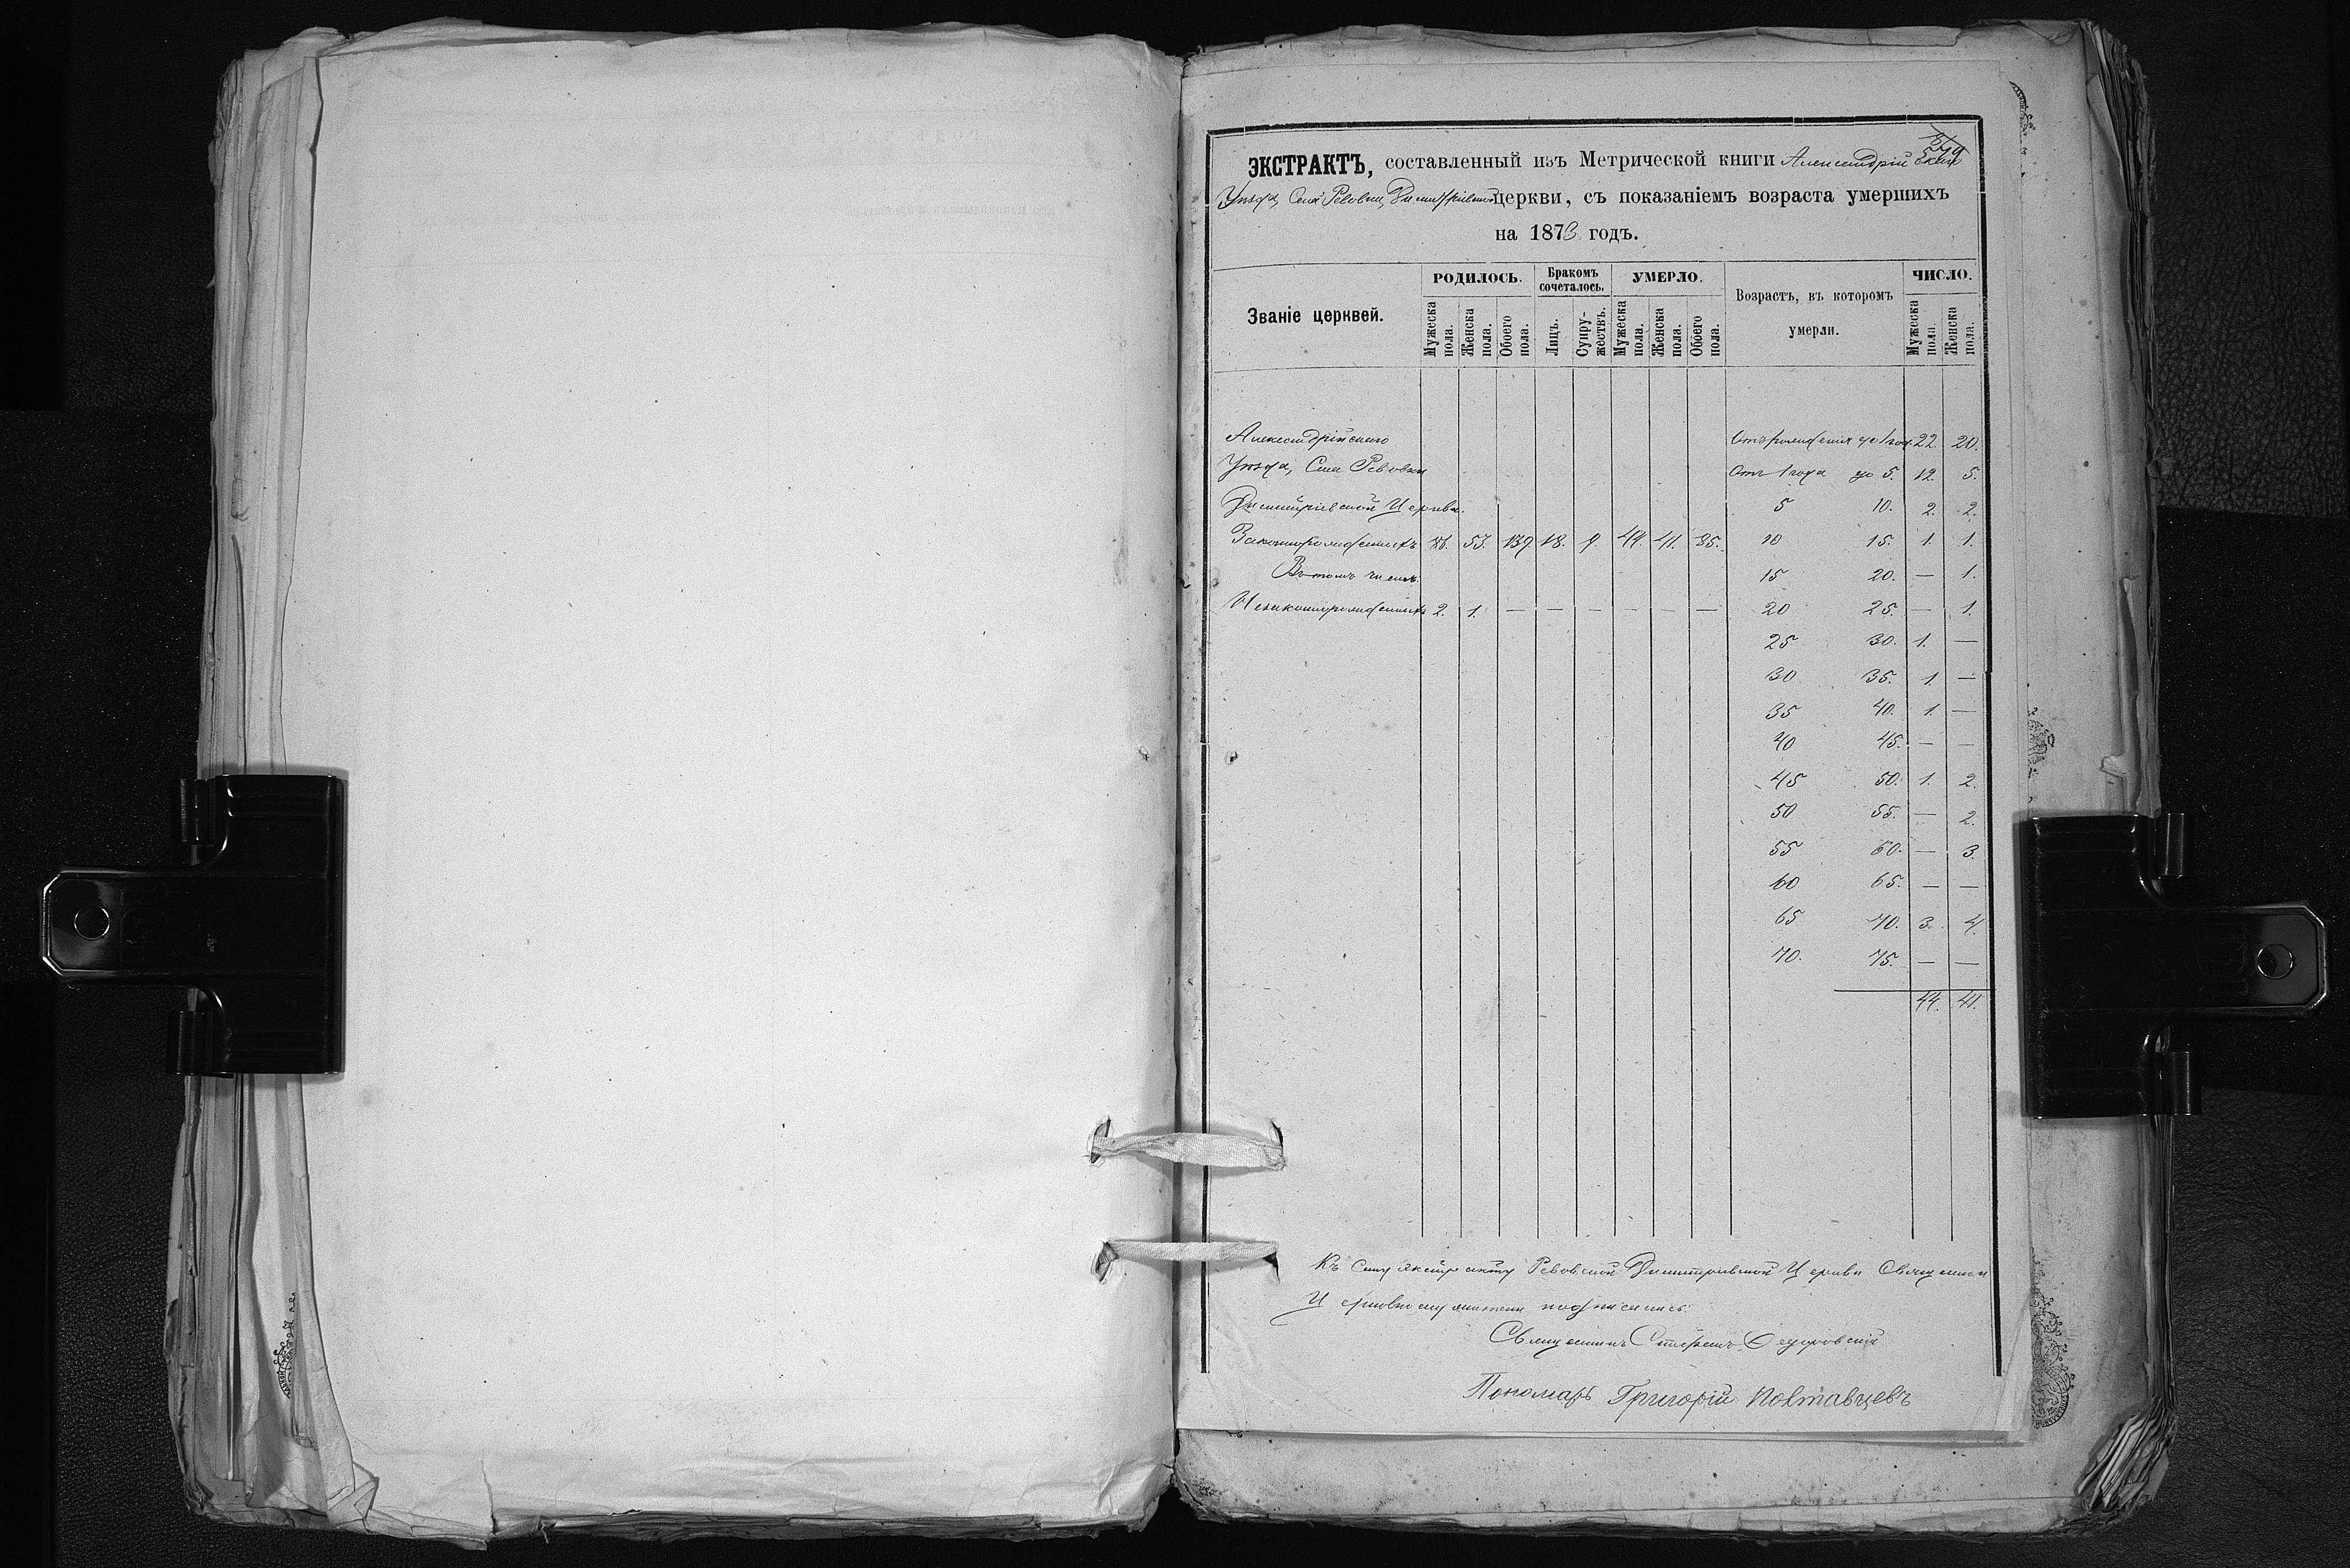 ЭКСТРАКТЪ, составленный изъ Метрической книги Александрійскаго
Уѣзда, Села Ревовки, Димитріевской церкви, съ показаніемъ возраста умершихъ
на 1873 годъ.
Званіе церквей. РОДИЛОСЬ. Бракомъ сочеталось. УМЕРЛО. Возрастъ, въ которомъ умерли. ЧИСЛО.
Мужеска пола. Женска пола. Обоего пола. Лицъ. Супружествъ. Мужеска пола. Женска пола. Обоего пола. Мужеска пола. Женска пола.
Александрійскаго Отъ рожденія до 1 год. 22. 20.
Уѣзда, Села Ревовки Отъ 1 года до 5. 12. 5.
Димитріевской Церкви. 5 10. 2. 2.
Законнорожденныхъ 53. 139 18. 9. 44. 41. 85. 10 15. 1. 1.
Въ томъ числѣ 15 20. — 1.
Незаконнорожденныхъ 2. 1. — — — — — — 20 25. — 1.
25 30. 1. —
30 35. 1. —
35 40. 1. —
40 45. — —
45 50. 1. 2.
50 55. — 2.
55 60. — 3.
60 65. — —
65 70. 3. 4.
70. 75. — —
44. 41.
Къ сему экстракту Ревовской Димитріевской Церкви Священно
Церковнослужители подписались:
Священникъ Стефанъ Федоровскій
Пономарь Григорій Полтавцевъ